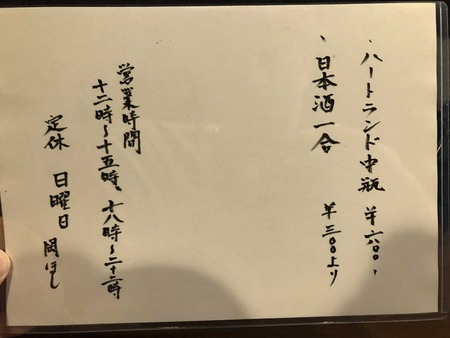 、ハートランド中瓶 ¥六八〇〇、
、日本酒一合 ¥三〇〇より
営業時間
十二時〜十五時、十八時〜二十二時
定休 日曜日 岡ほし